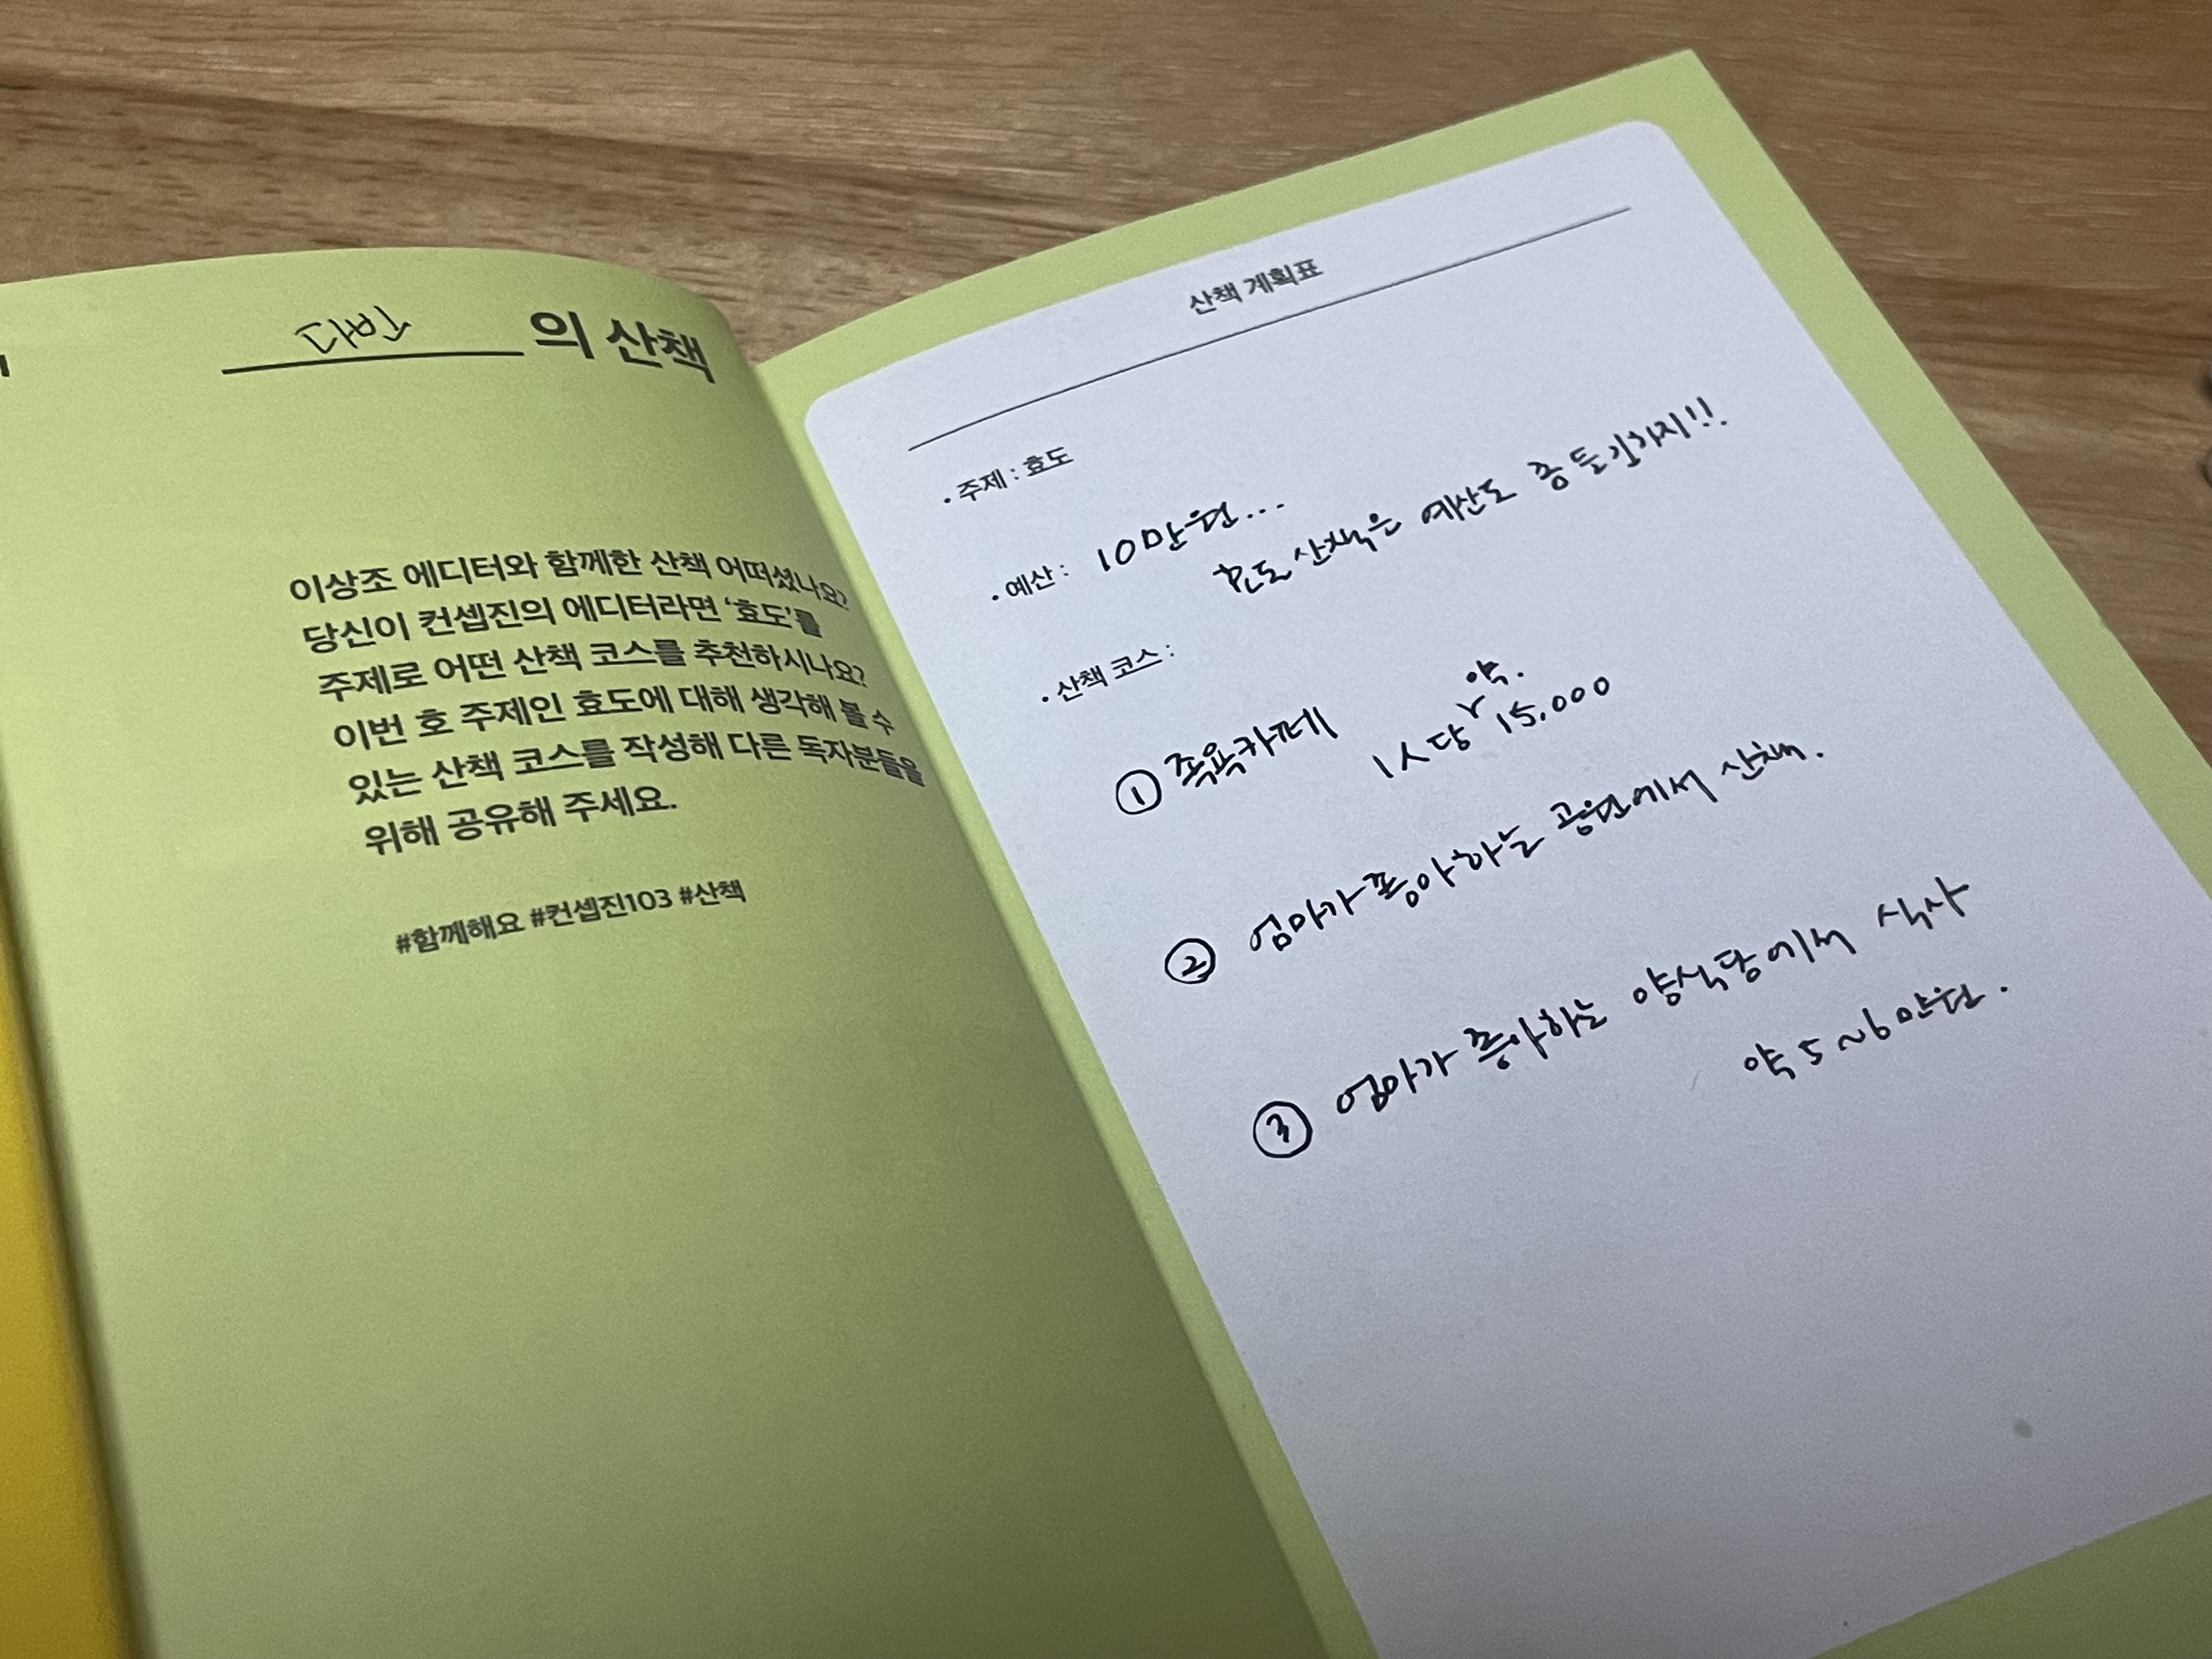 의 산책
이상조 에디터와 함께한 산책 어떠셨나요?
당신이 컨셉진의 에디터라면 ‘효도’를
주제로 어떤 산책 코스를 추천하시나요?
이번 호 주제인 효도에 대해 생각해 볼 수
있는 산책 코스를 작성해 다른 독자분들을
위해 공유해 주세요.
#함께해요 #컨셉진103 #산책
산책 계획표
• 주제 : 효도
• 예산 : 10만원...
효도 산책은 예산도 좀 들긴하지!!
• 산책 코스 :
약.
① 족욕카페 1人당 15,000
② 엄마가 좋아하는 공원에서 산책.
③ 엄마가 좋아하는 양식당에서 식사
약 5~6만원.